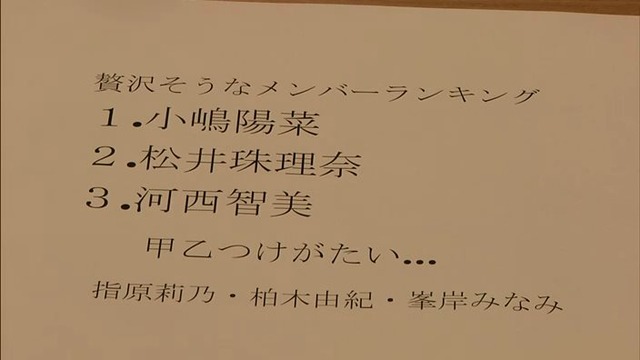 贅沢そうなメンバーランキング
１.小嶋陽菜
２.松井珠理奈
３.河西智美
甲乙つけがたい...
指原莉乃・柏木由紀・峯岸みなみ